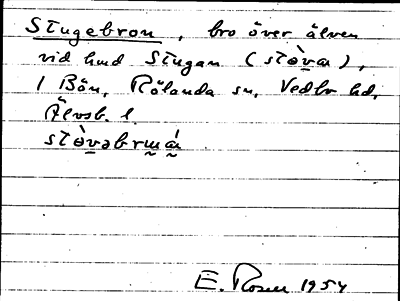 Stugebron, bro över älven
vid hmd Stugan (stòva),
1 Bön, Rölanda sn, Vedbo hd,
Älvsb. l.
stòvəbrɯán
E. Rosen 1954